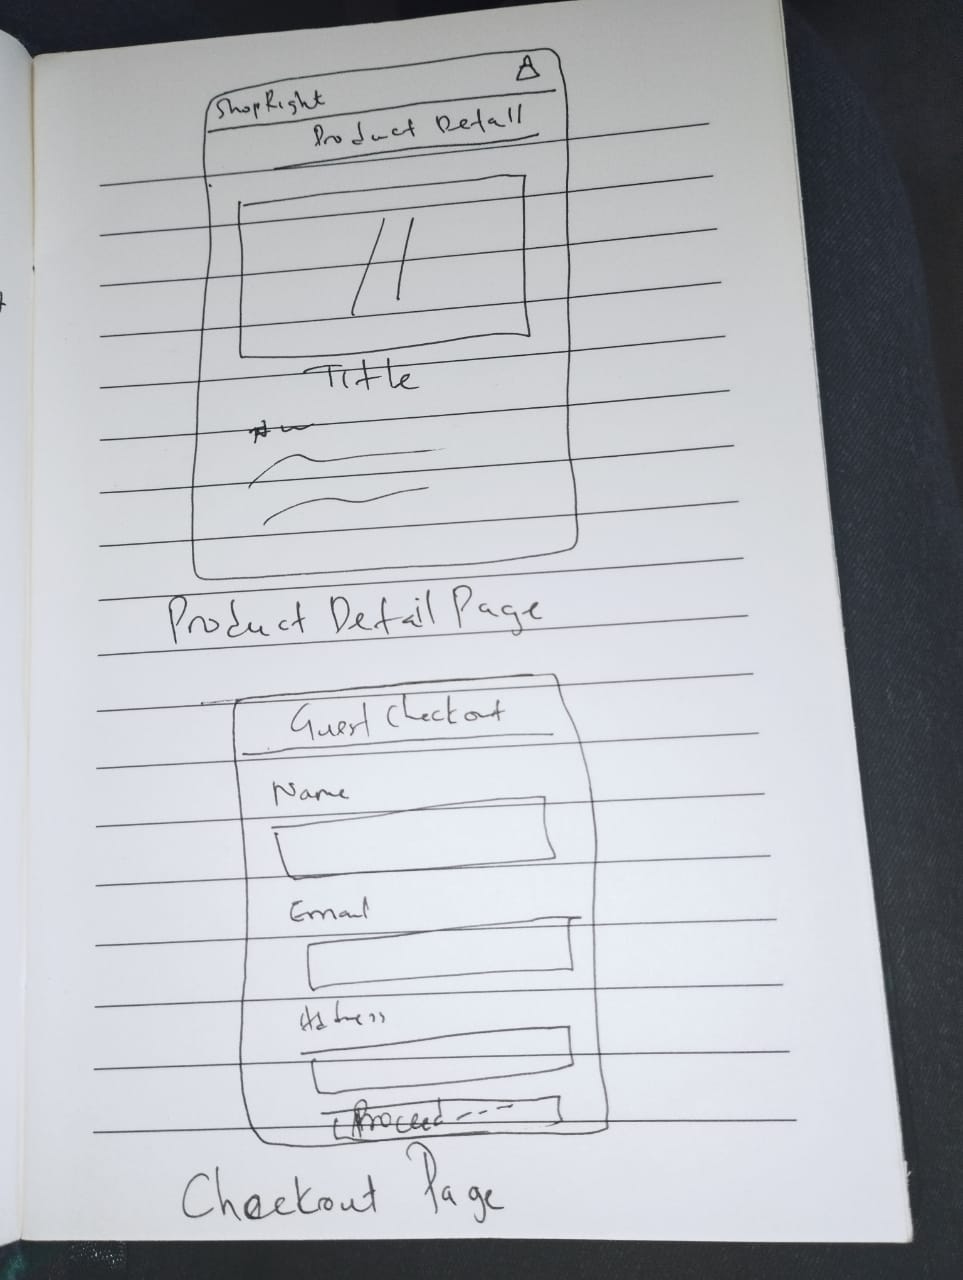 ShopRight
Product Detail
Title
Product Detail Page
Guest Checkout
Name
Email
Address
Proceed ---
Checkout Page